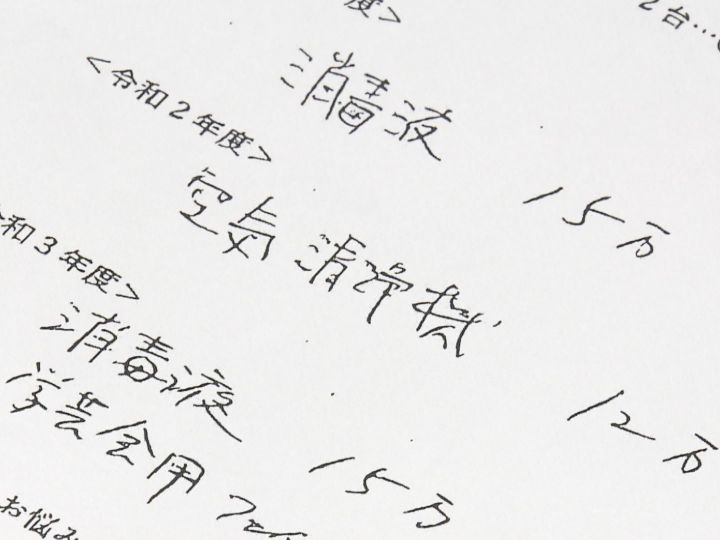 度＞
2台…
消毒液 15万
＜令和2年度＞
空気清浄機 12万
令和3年度＞
消毒液 15万
学芸会用
お悩み